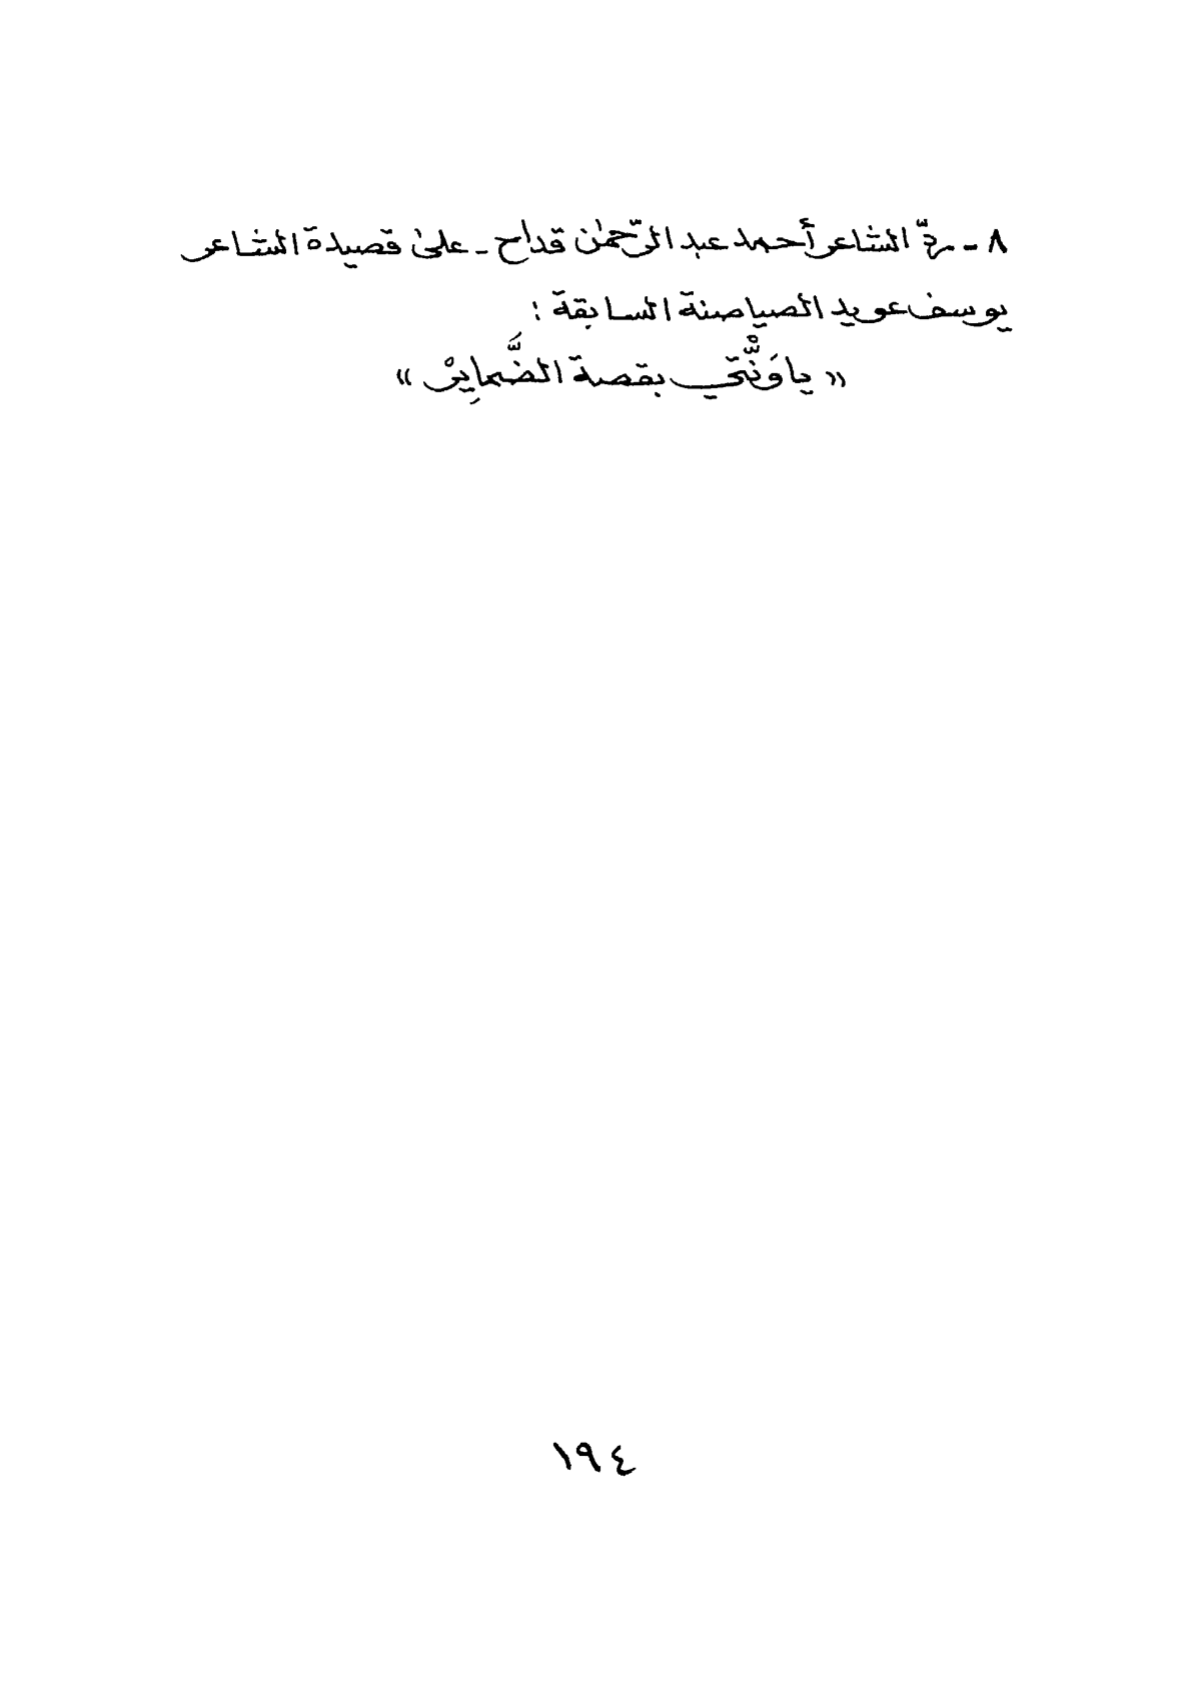 ٨ - ردّ الشاعر أحمد عبد الرّحمٰن قداح - علىٰ قصيدة الشاعر
يوسف عويد الصياصنة السابقة :
« ياوَنّْتي بقصة الضَّمايِرْ »
١٩٤